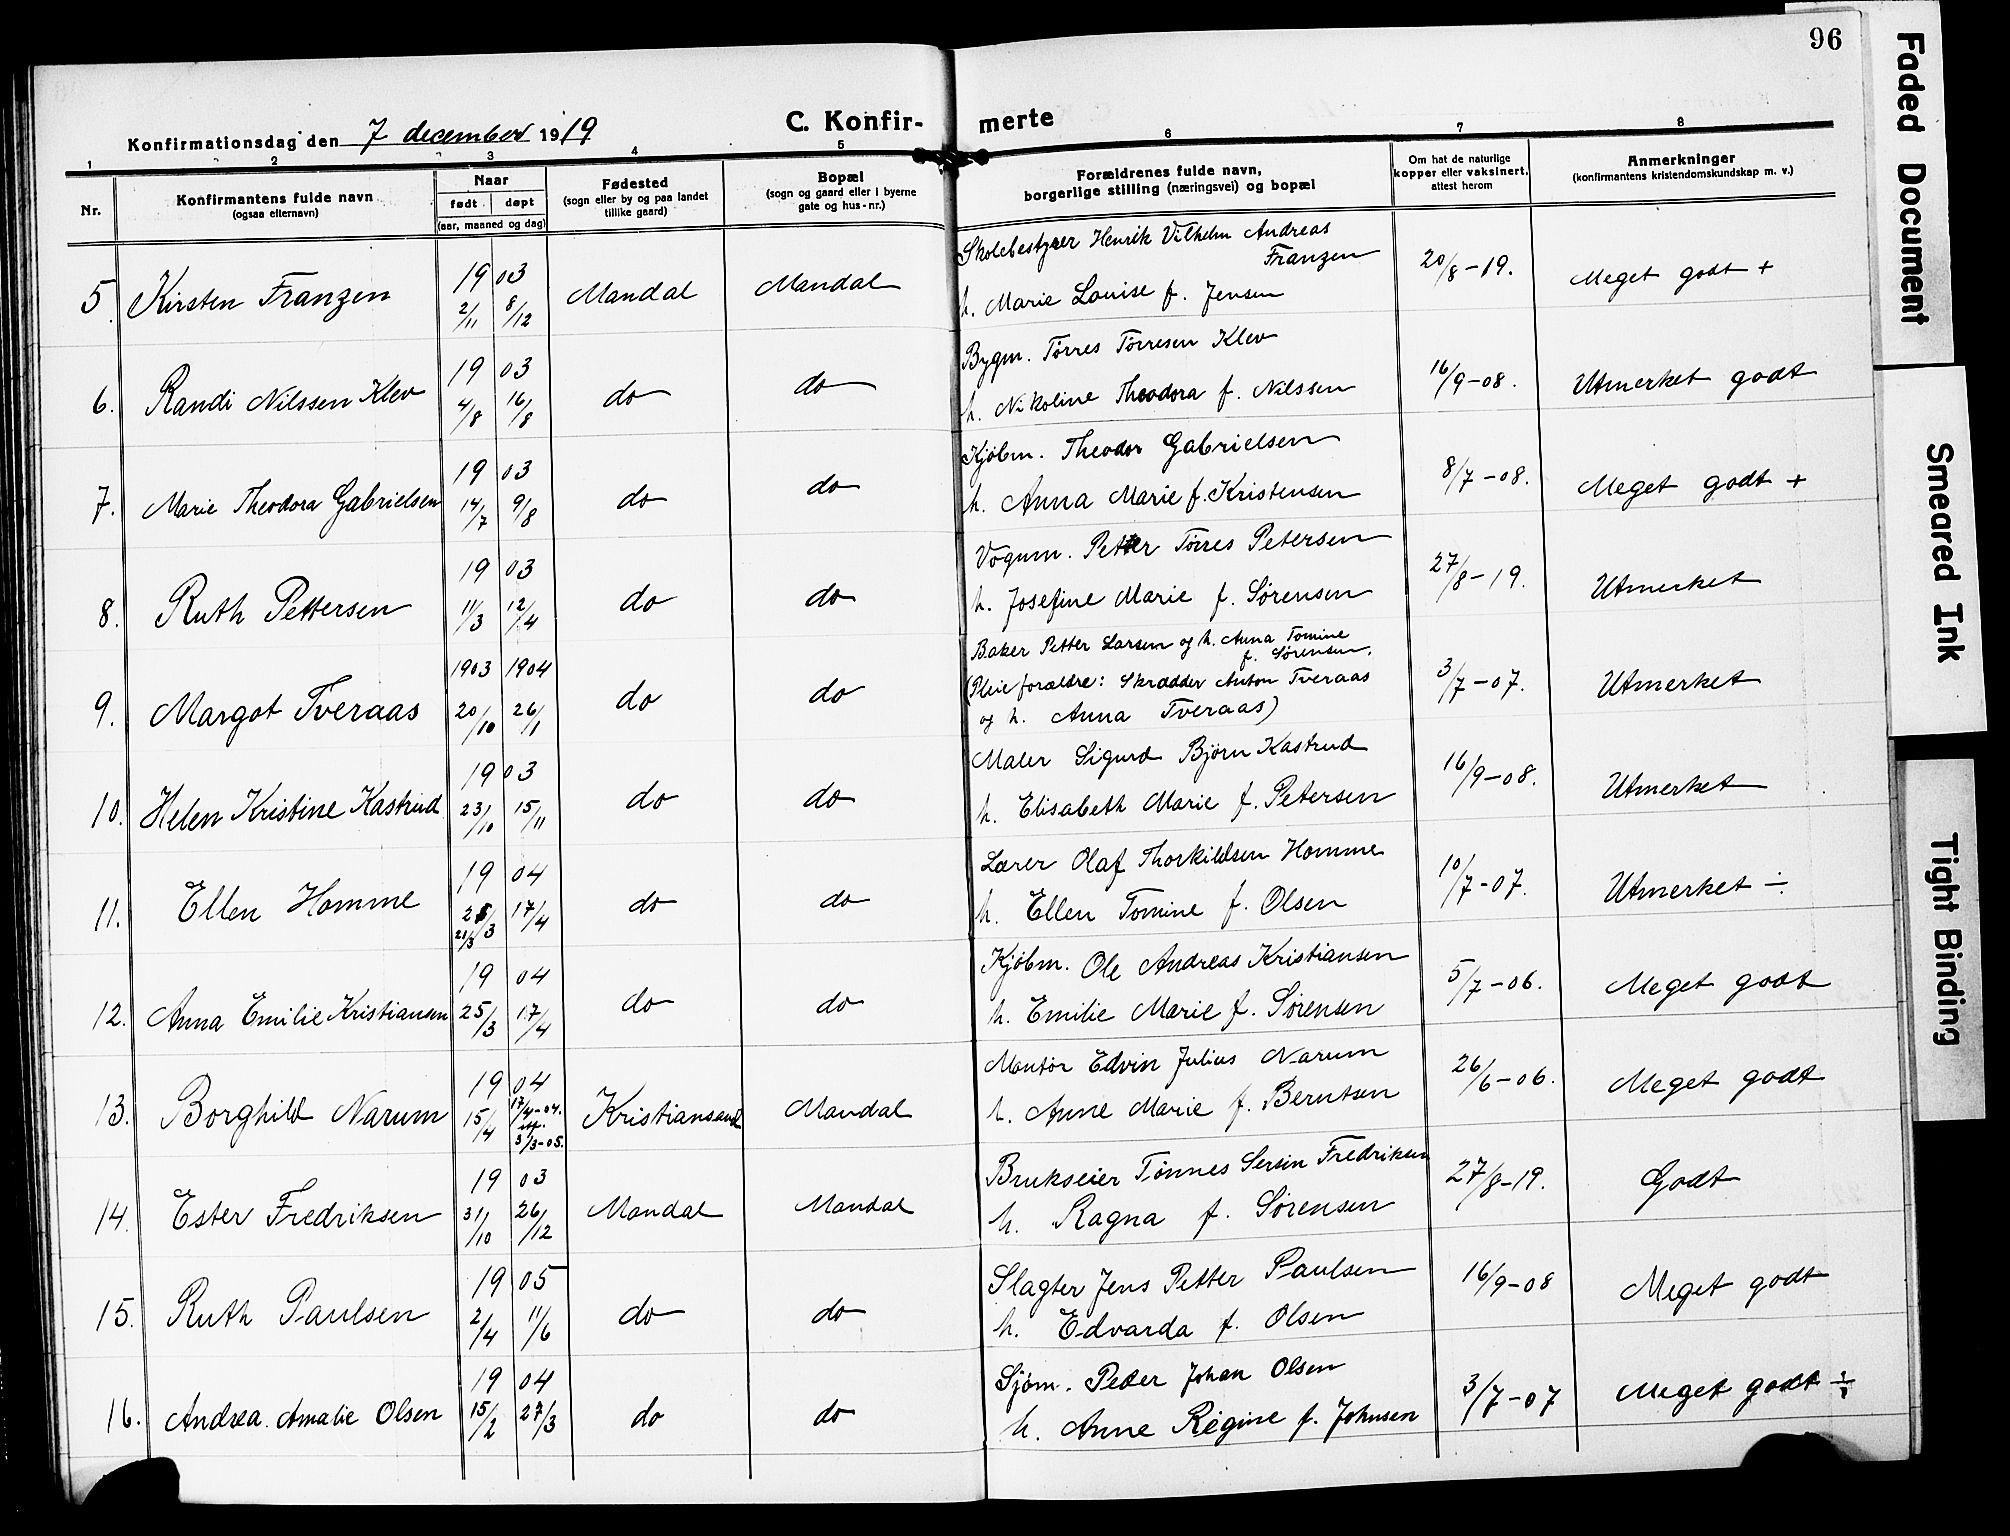 96
C. Konfirmerte
Konfirmationsdag den 7 december 1919
1 2 3 4 5 6 7 8
Nr.
Konfirmantens fulde navn
(ogsaa efternavn)
Naar
født døpt
(aar, maaned og dag)
Fødested
(sogn eller by og paa landet
tillike gaard)
Bopæl
(sogn og gaard eller i byerne
gate og hus-nr.)
Forældrenes fulde navn,
borgerlige stilling (næringsvei) og bopæl
Om hat de naturlige
kopper eller vaksinert,
attest herom
Anmerkninger
(konfirmantens kristendomskundskap m. v.)
5. Kirsten Franzen 1903 2/11 8/12 Mandal Mandal
Skolebestyrer Henrik Vilhelm Andreas
Franzen
h. Marie Louise f. Jensen
20/8-19. Meget godt +
6. Randi Nilssen Klev 1903 4/8 16/8 do do
Bygm. Tørres Tørresen Klev
h. Nikoline Theodora f. Nilssen
16/9-08. Utmerket godt
7. Marie Theodora Gabrielsen 1903 14/7 9/8 do do
Kjøbm. Theodor Gabrielsen
h. Anna Marie f. Kristensen
8/7-08. Meget godt +
8. Ruth Pettersen 1903 11/3 12/4 do do
Vognm. Petter Tørres Petersen
h. Josefine Marie f. Sørensen
27/8-19. Utmerket
9. Margot Tveraas 1903 1904 20/10 26/1 do do
Baker Petter Larsen og h. Anna Tomine
f. Sørensen.
(Pleieforældre: Skrædder Anton Tveraas
og h. Anna Tveraas)
3/7-07. Utmerket
10. Helen Kristine Kastrud 1903 23/10 15/11 do do
Maler Sigurd Bjørn Kastrud
h. Elisabeth Marie f. Petersen
16/9-08. Utmerket
11. Ellen Homme 1904 21/3 17/4 do do
Lærer Olaf Thorkildsen Homme
h. Ellen Tomine f. Olsen
10/7-07. Utmerket ÷
12. Anna Emilie Kristiansen 1904 25/3 17/4 do do
Kjøbm. Ole Andreas Kristiansen
h. Emilie Marie f. Sørensen
5/7-06. Meget godt
13. Borghild Narum 1904 15/4 17/4-04. 3/3-05. Kristiansand Mandal
Montør Edvin Julius Narum
h. Anne Marie f. Berntsen
26/6-06. Meget godt
14. Ester Fredriksen 1903 31/10 26/12 Mandal Mandal
Brukseier Tønnes Sersin Fredriksen
h. Ragna f. Sørensen
27/8-19. Godt
15. Ruth Paulsen 1905 2/4 11/6 do do
Slagter Jens Petter Paulsen
h. Edvarda f. Olsen
16/9-08 Meget godt
16. Andrea Amalie Olsen 1904 15/2 27/3 do do
Sjøm. Peder Johan Olsen
h. Anne Regine f. Johnsen
3/7-07 Meget godt ÷
Faded Document
Smeared Ink
Tight Binding